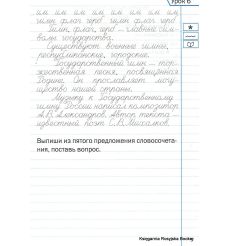 Урок 6
им им им им им им им им
гимн флаг герб гимн флаг герб
Гимн, флаг, герб – главные сим-
волы государства.
Существуют военные гимны,
республиканские, городские.
Государственный гимн – тор-
жественная песня, посвящённая
Родине. Он прославляет могу-
щество нашей страны.
Музыку к Государственному
гимну России написал композитор
А.В. Александров. Автор текста –
известный поэт С.В. Михалков.
Выпиши из пятого предложения словосочета-
ния, поставь вопрос.
Księgarnia Rosyjska Booteg